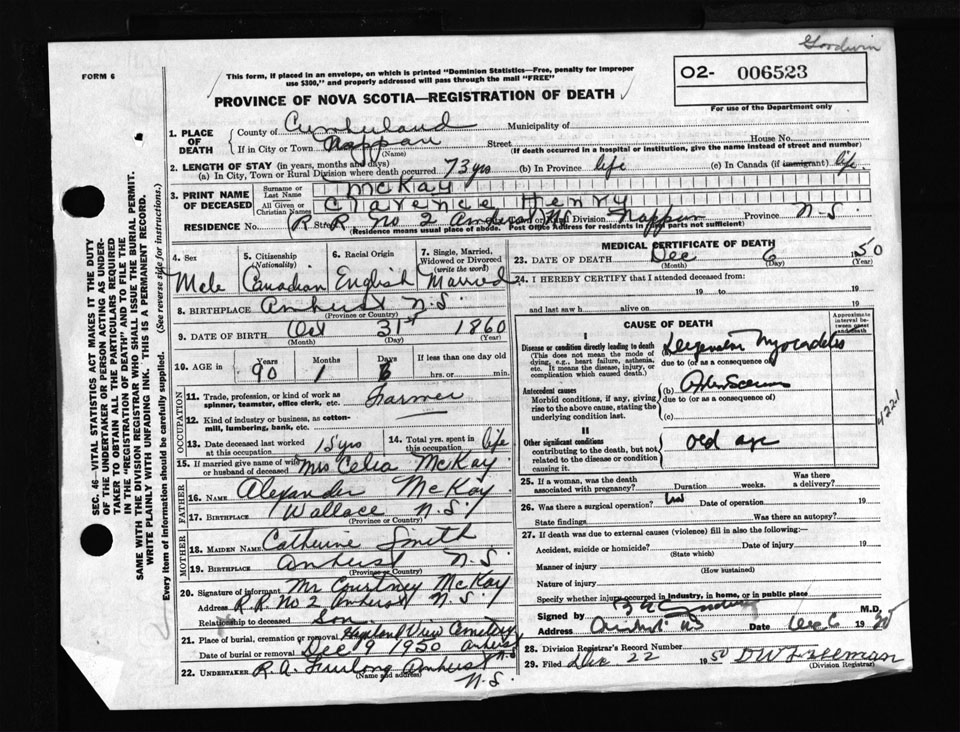 Goodwin
FORM 6
This form, if placed in an envelope, on which is printed "Dominion Statistics—Free, penalty for improper
use $300," and properly addressed will pass through the mail "FREE"
PROVINCE OF NOVA SCOTIA—REGISTRATION OF DEATH
O2- 006523
For use of the Department only
SEC. 46—VITAL STATISTICS ACT MAKES IT THE DUTY
OF THE UNDERTAKER OR PERSON ACTING AS UNDER-
TAKER TO OBTAIN ALL THE PARTICULARS REQUIRED
IN THE "REGISTRATION OF DEATH" AND TO FILE THE
SAME WITH THE DIVISION REGISTRAR WHO SHALL ISSUE THE BURIAL PERMIT.
WRITE PLAINLY WITH UNFADING INK. THIS IS A PERMANENT RECORD.
Every item of information should be carefully supplied. (See reverse side for instructions.)
1. PLACE OF DEATH County of Cumberland Municipality of
If in City or Town Nappan Street House No.
(Name) (If death occurred in a hospital or institution, give the name instead of street and number)
2. LENGTH OF STAY (in years, months and days)
(a) In City, Town or Rural Division where death occurred 73 yrs (b) In Province life (c) In Canada (if immigrant) life
3. PRINT NAME OF DECEASED Surname or Last Name McKay
All Given or Christian Names Clarence Henry
RESIDENCE No. Street R.R. No 2 Amherst N.S. or Rural Division Nappan Province N.S.
(Residence means usual place of abode. Post Office Address for residents in rural parts not sufficient)
4. Sex 5. Citizenship (Nationality) 6. Racial Origin 7. Single, Married, Widowed or Divorced (write the word)
Male Canadian English Married
8. BIRTHPLACE Amherst N.S.
(Province or Country)
9. DATE OF BIRTH Oct 31st 1860
(Month) (Day) (Year)
10. AGE in Years Months Days If less than one day old
90 1 6 hrs. or min.
OCCUPATION
11. Trade, profession, or kind of work as spinner, teamster, office clerk, etc. Farmer
12. Kind of industry or business, as cotton-mill, lumbering, bank, etc.
13. Date deceased last worked at this occupation 15 yrs 14. Total yrs. spent in this occupation life
15. If married give name of wife or husband of deceased Mrs Celia McKay
FATHER
16. NAME Alexander McKay
17. BIRTHPLACE Wallace N.S.
(Province or Country)
MOTHER
18. MAIDEN NAME Catherine Smith
19. BIRTHPLACE Amherst N.S.
(Province or Country)
20. Signature of informant Mr Courtney McKay
Address R.R. No 2 Amherst N.S.
Relationship to deceased Son
21. Place of burial, cremation or removal Highland View Cemetery
Date of burial or removal Dec 9 1950 Amherst N.S.
22. UNDERTAKER R.A. Furlong Amherst N.S.
(Name and address)
MEDICAL CERTIFICATE OF DEATH
23. DATE OF DEATH Dec 6 1950
(Month) (Day) (Year)
24. I HEREBY CERTIFY that I attended deceased from:
19 to 19
and last saw h alive on 19
CAUSE OF DEATH
Approximate interval between onset and death
I
Disease or condition directly leading to death
(This does not mean the mode of dying, e.g., heart failure, asthenia, etc. It means the disease, injury, or complication which caused death.)
due to (or as a consequence of)
(b)
Antecedent causes
Morbid conditions, if any, giving rise to the above cause, stating the underlying condition last.
due to (or as a consequence of)
(c)
4221
II
Other significant conditions contributing to the death, but not related to the disease or condition causing it.
old age
25. If a woman, was the death associated with pregnancy? Duration weeks. Was there a delivery?
26. Was there a surgical operation? Date of operation 19
State findings Was there an autopsy?
27. If death was due to external causes (violence) fill in also the following:
Accident, suicide or homicide? Date of injury 19
(State which)
Manner of injury
(How sustained)
Nature of injury
Specify whether injury occurred in industry, in home, or in public place
Signed by M.D.
Address Amherst NS Date Dec 6 1950
28. Division Registrar's Record Number
29. Filed Dec 22 1950
(Division Registrar)